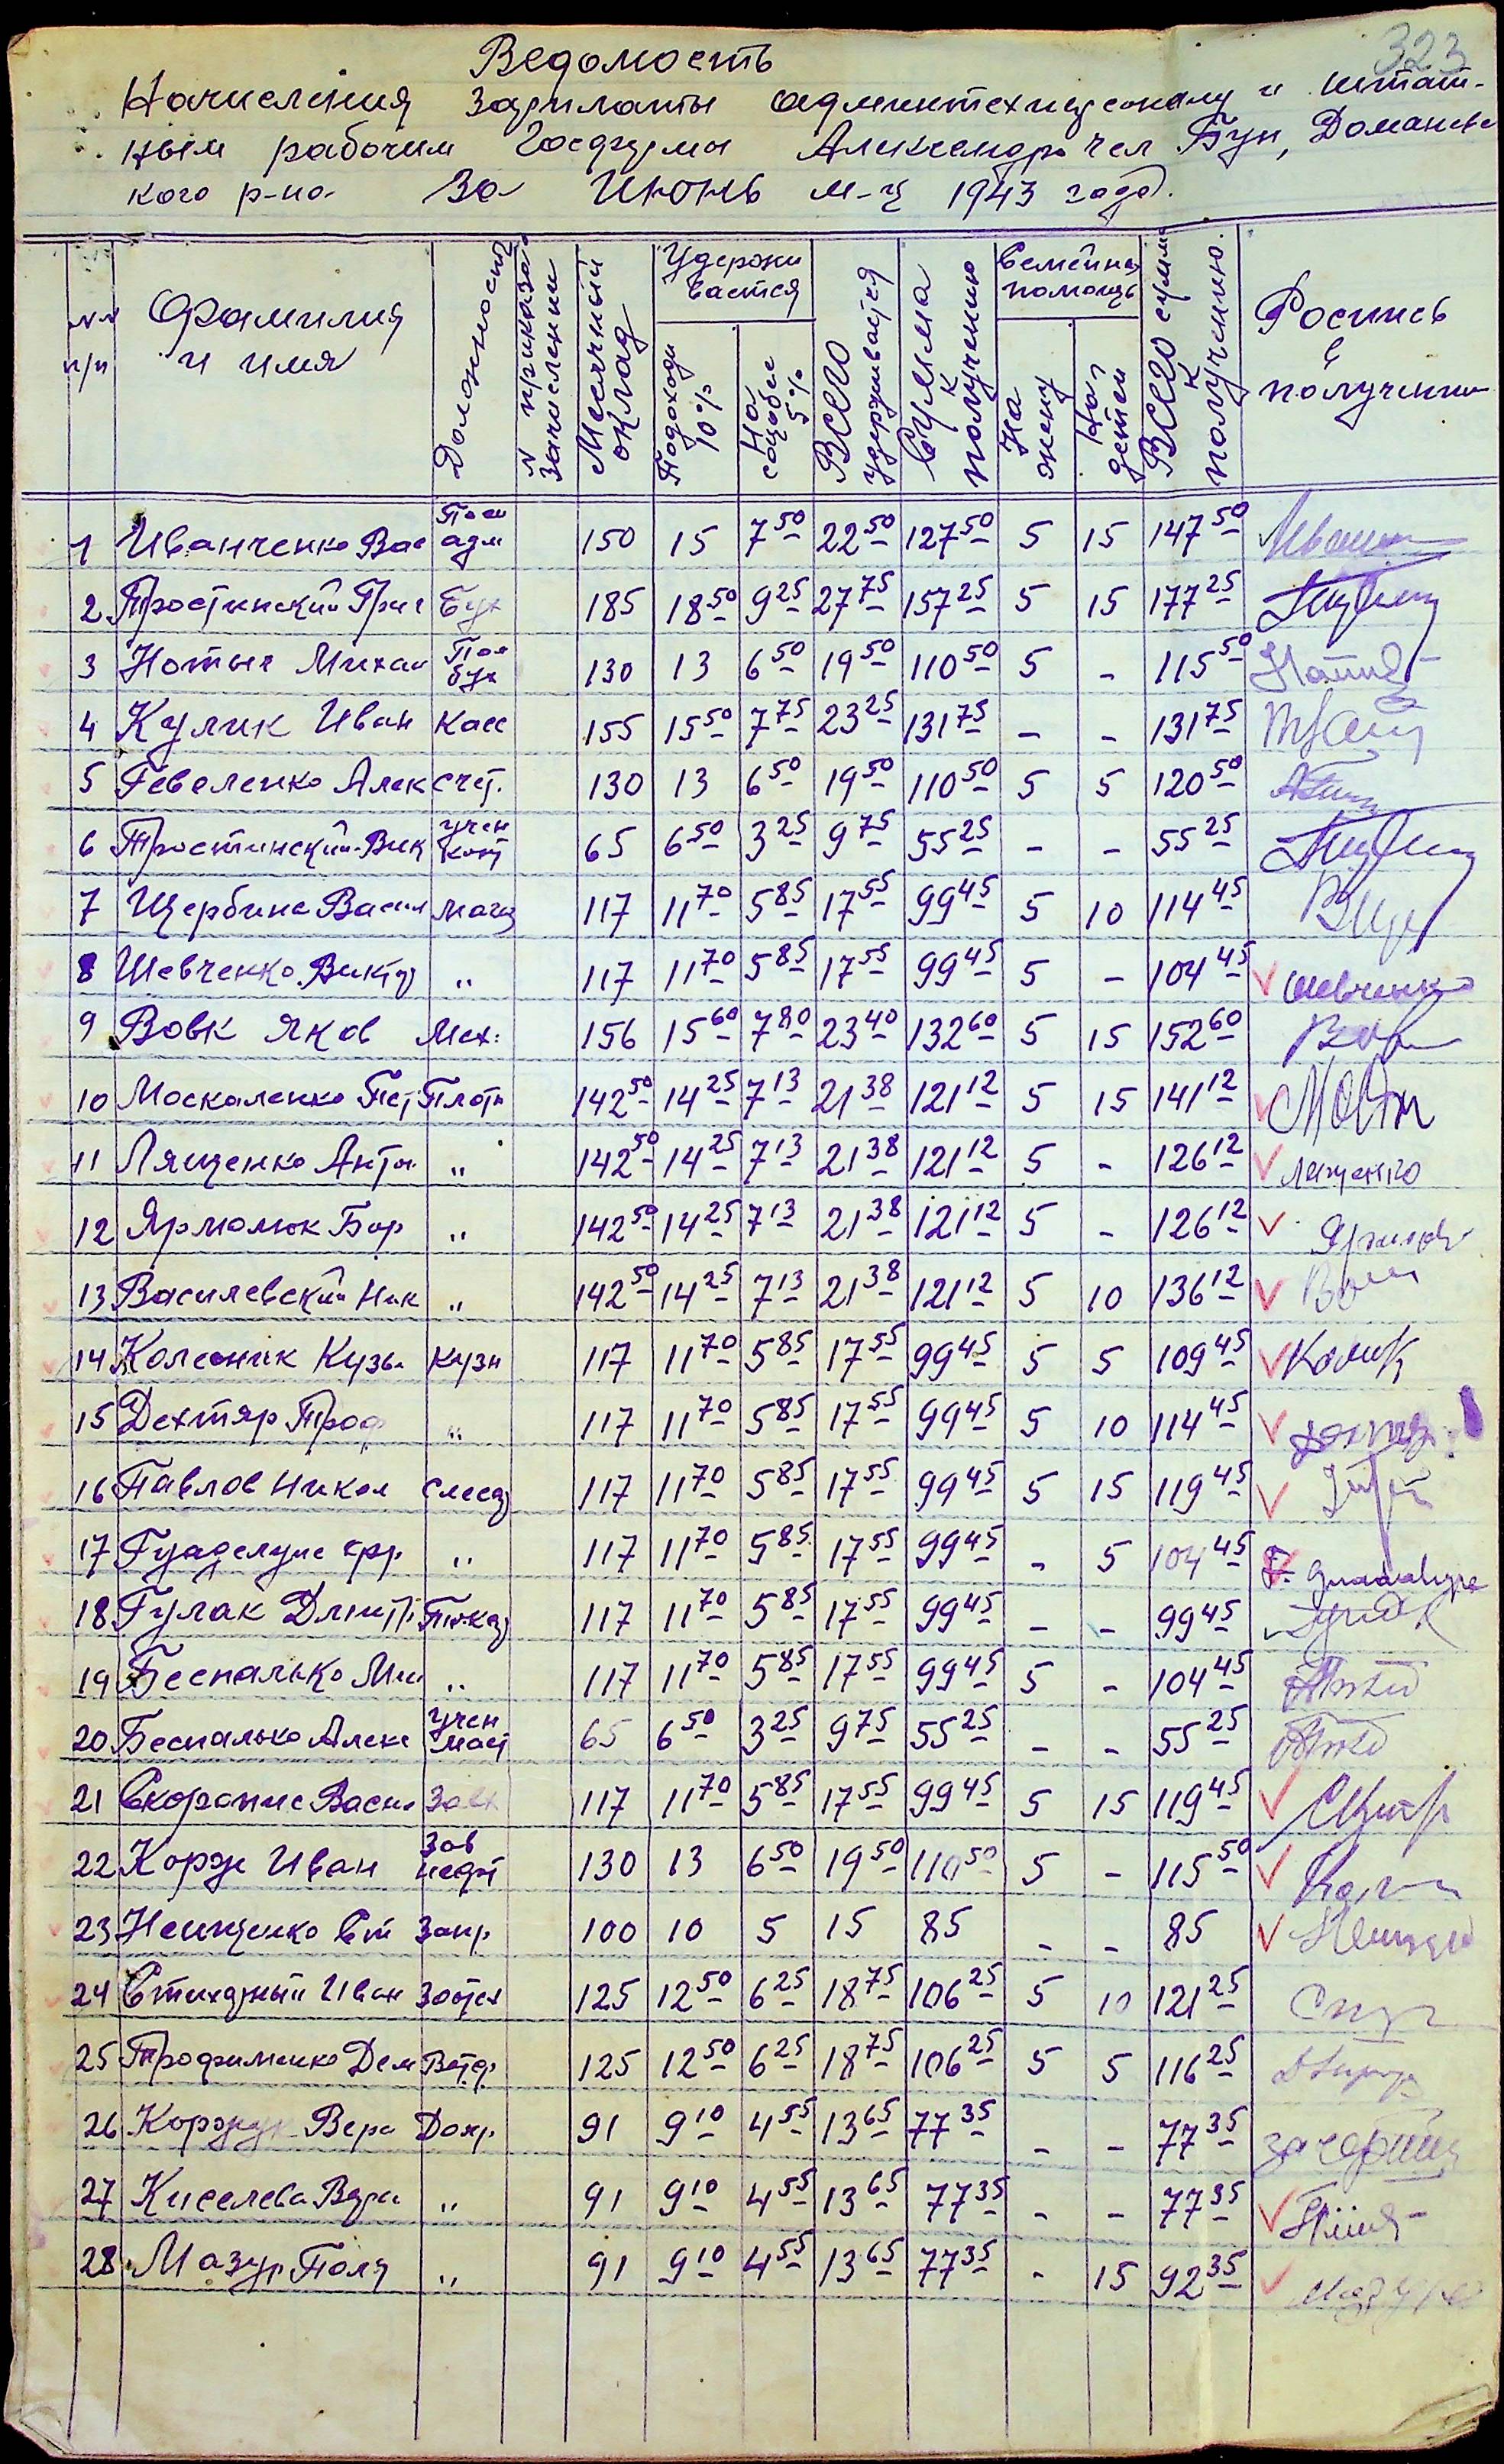 323
Ведомость
Начисления зарплаты админтехперсоналу и штат-
ным рабочим Госфермы Александро
кого р-на за Июнь м-ц 1943 года.
№№ п/п
Фамилия и имя
Должность
№ приказа зачислении
Месячный оклад
Удерживается
Подоходн 10%
На соцобес 5%
Всего удерживается
Сумма к получению
Семейна помощь
На жену
На детей
Всего сумм к получению.
Роспись в получении
1 Иванченко Вас адм 150 15 7 50 22 50 127 50 5 15 147 50
2 Тростинский Григ Бух 185 18 50 9 25 27 75 157 25 5 15 177 25
3 Нотыч Михаи Пом бух 130 13 6 50 19 50 110 50 5 - 115 50
4 Кулик Иван Касс 155 15 50 7 75 23 25 131 75 - - 131 75
5 Геваленко Алек счет. 130 13 6 50 19 50 110 50 5 5 120 50
6 Тростинский Вик учен конт 65 6 50 3 25 9 75 55 25 - - 55 25
7 Щербина Васил магаз 117 11 70 5 85 17 55 99 45 5 10 114 45
8 Шевченко Виктор " 117 11 70 5 85 17 55 99 45 5 - 104 45 Шевченко
9 Вовк Яков Мех. 156 15 60 7 80 23 40 132 60 5 15 152 60
10 Москаленко Пет Плотн 142 50 14 25 7 13 21 38 121 12 5 15 141 12
11 Лященко Антон " 142 50 14 25 7 13 21 38 121 12 5 - 126 12 Лященко
12 Ярмолюк Бор " 142 50 14 25 7 13 21 38 121 12 5 - 126 12
13 Василевский Ник " 142 50 14 25 7 13 21 38 121 12 5 10 136 12
14 Колесник Кузь Кузн 117 11 70 5 85 17 55 99 45 5 5 109 45
15 Дехтяр Троф " 117 11 70 5 85 17 55 99 45 5 10 114 45
16 Павлов Никол слесар 117 11 70 5 85 17 55 99 45 5 15 119 45
17 Гуаделупе фр. " 117 11 70 5 85 17 55 99 45 - 5 104 45 F. Guadalupe
18 Гулак Дмит 117 11 70 5 85 17 55 99 45 - - 99 45
19 Беспалько Ми " 117 11 70 5 85 17 55 99 45 5 - 104 45
20 Беспалько Алекс учен маст 65 6 50 3 25 9 75 55 25 - - 55 25
21 Васил Завх 117 11 70 5 85 17 55 99 45 5 15 119 45
22 Корж Иван Зав нефт 130 13 6 50 19 50 110 50 5 - 115 50
23 Ст Запр. 100 10 5 15 85 - - 85
24 Иван Зоотех 125 12 50 6 25 18 75 106 25 5 10 121 25
25 Трофименко Дем Ветф 125 12 50 6 25 18 75 106 25 5 5 116 25
26 Вера Дояр. 91 9 10 4 55 13 65 77 35 - - 77 35
27 Киселева Вера " 91 9 10 4 55 13 65 77 35 - - 77 35
28 Мазур Поля " 91 9 10 4 55 13 65 77 35 - 15 92 35